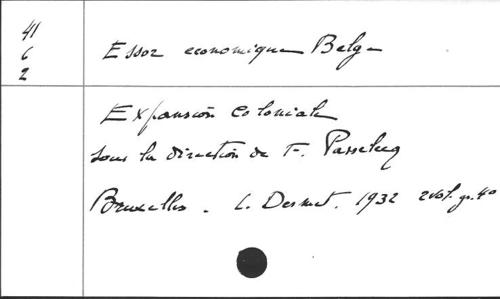 41
6
2
Essor economique Belge
Expansion Coloniale
sous la direction de F. Passelecq
Bruxelles. L. Desmet. 1932 2 vol. gr. 4º